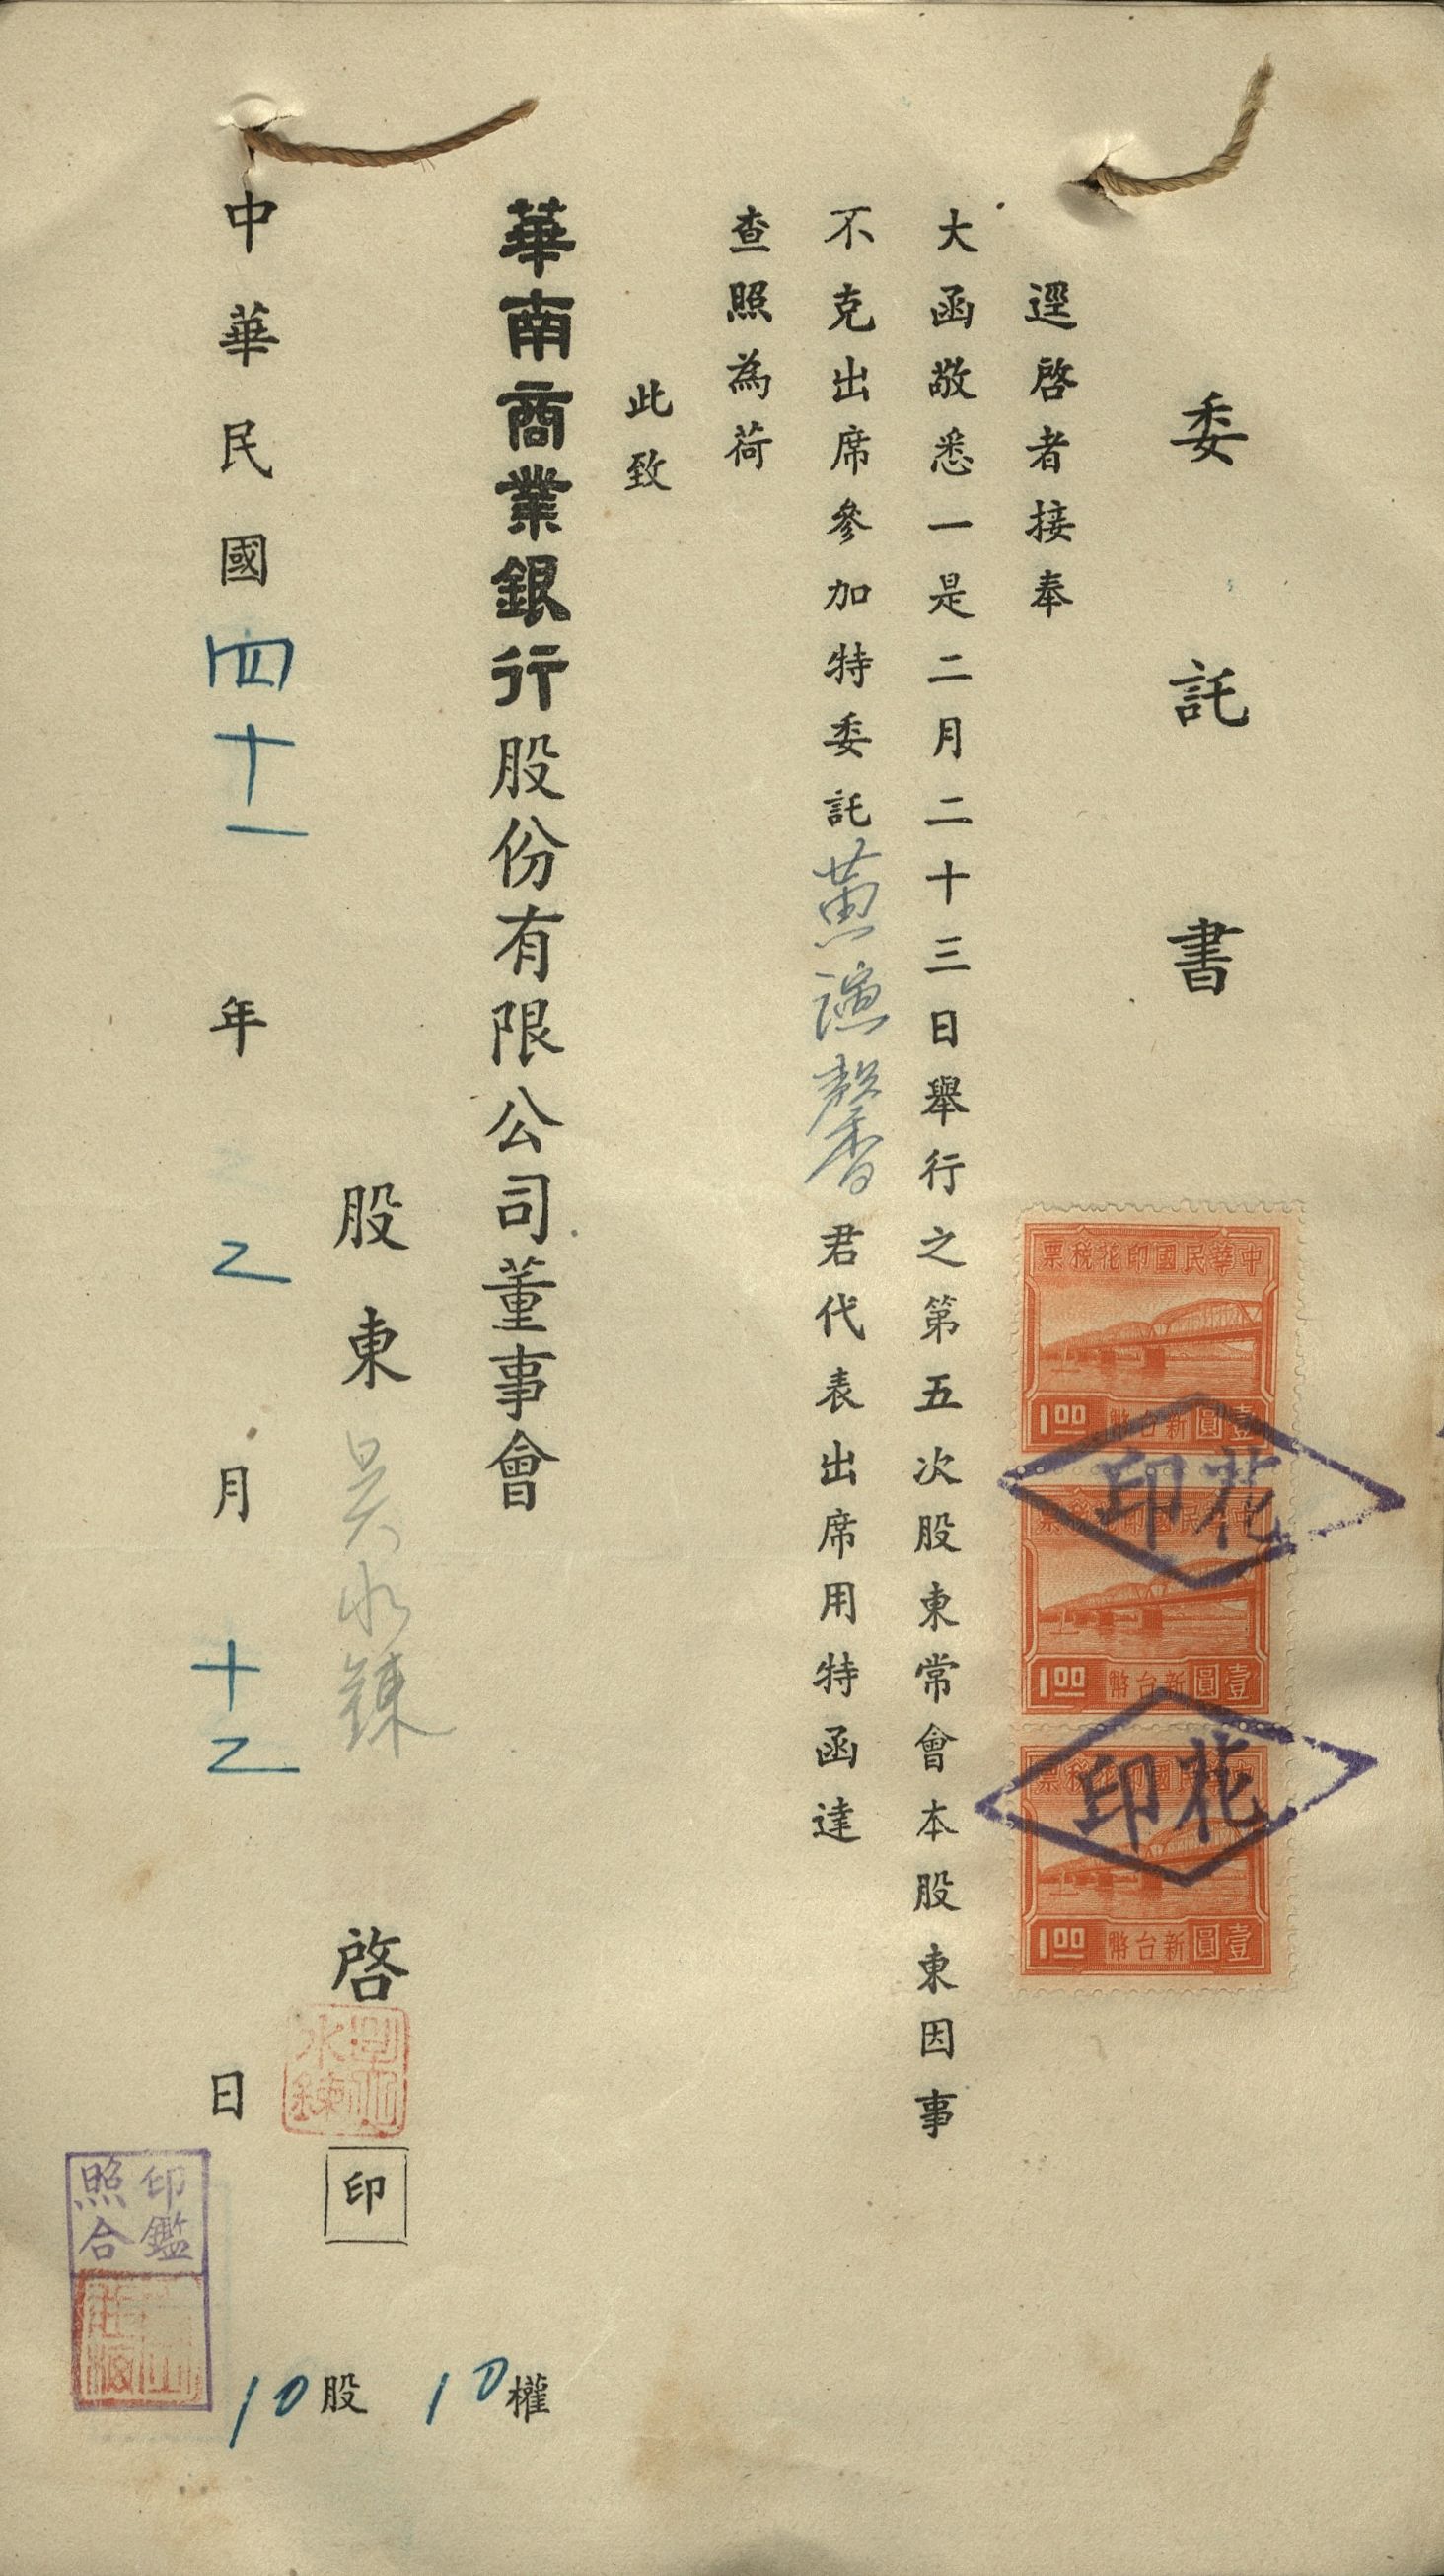 委託書
逕啓者接奉
大函敬悉一是二月二十三日舉行之第五次股東常會本股東因事
不克出席參加特委託黃演馨君代表出席用特函達
查照為荷
此致
華南商業銀行股份有限公司董事會
股東吳水鍊啓
印
中華民國四十一年乙月十乙日
10股
10權
中華民國印花稅票
1.00 壹圓新台幣
中華民國印花稅票
1.00 壹圓新台幣
中華民國印花稅票
1.00 壹圓新台幣
花印
花印
水鍊
印鑑
照合